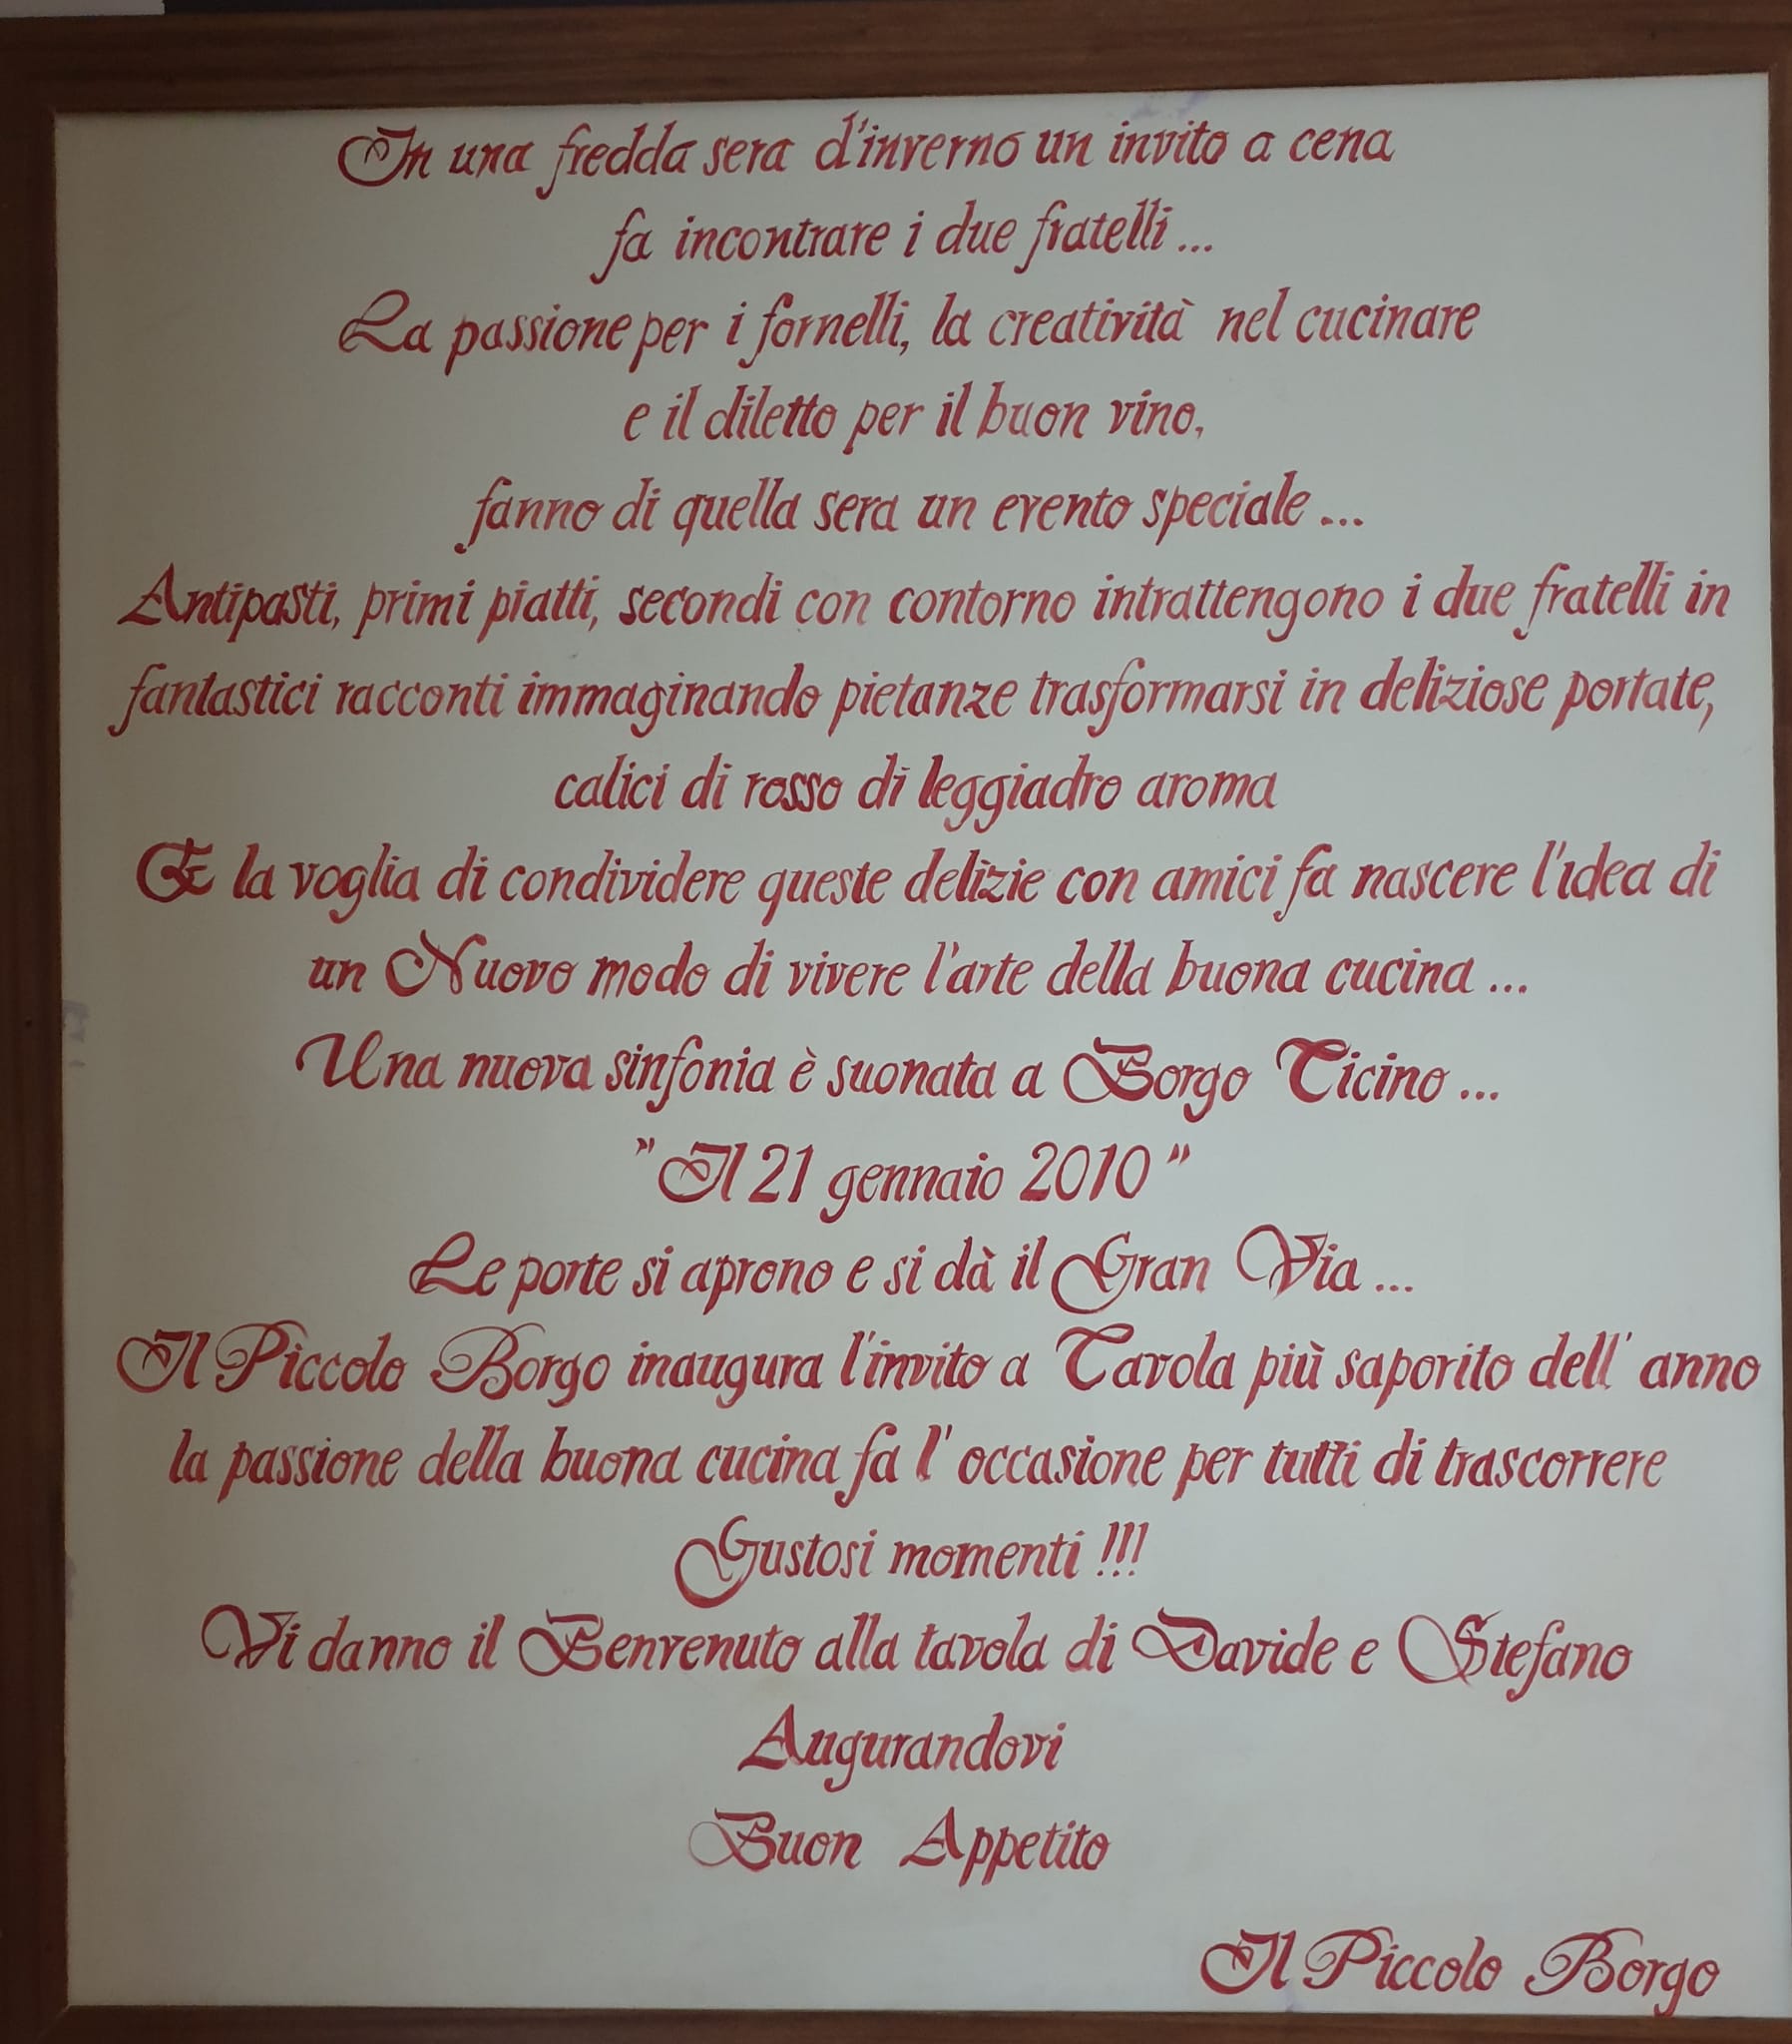 In una fredda sera d'inverno un invito a cena
fa incontrare i due fratelli...
La passione per i fornelli, la creatività nel cucinare
e il diletto per il buon vino,
fanno di quella sera un evento speciale...
Antipasti, primi piatti, secondi con contorno intrattengono i due fratelli in
fantastici racconti immaginando pietanze trasformarsi in deliziose portate,
calici di rosso di leggiadro aroma
E la voglia di condividere queste delizie con amici fa nascere l'idea di
un Nuovo modo di vivere l'arte della buona cucina...
Una nuova sinfonia è suonata a Borgo Ticino...
"Il 21 gennaio 2010"
Le porte si aprono e si dà il Gran Via...
Il Piccolo Borgo inaugura l'invito a Tavola più saporito dell' anno
la passione della buona cucina fa l' occasione per tutti di trascorrere
Gustosi momenti !!!
Vi danno il Benvenuto alla tavola di Davide e Stefano
Augurandovi
Buon Appetito
Il Piccolo Borgo